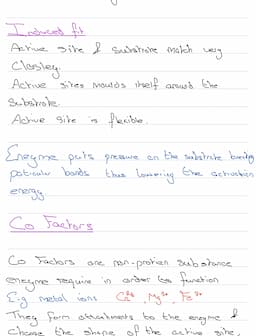 Induced fit
Active site & substrate match very
Closley.
Active sites moulds itself around the
Substrate.
Active site is flexible.
Enzyme puts pressure on the substrate breaking
paticular bonds thus lowering the activation
energy
Co Factors
Co Factors are non-protien substance
enzyme require in order to function
E.g metal ions Mg²⁺
They form attachments to the enzyme &
Change the shape of the active site,